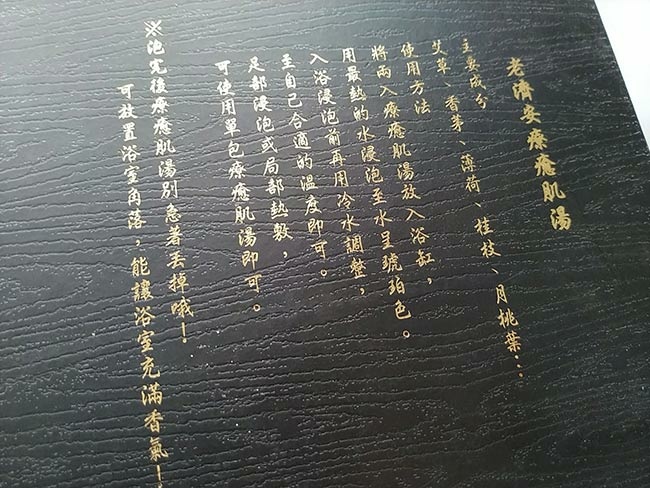 老濟安療癒肌湯
主要成分
艾草、香茅、薄荷、桂枝、月桃葉⋯
使用方法
將兩入療癒肌湯放入浴缸，
用最熱的水浸泡至水呈琥珀色。
入浴浸泡前再用冷水調整，
至自己合適的溫度即可。
足部浸泡或局部熱敷，
可使用單包療癒肌湯即可。
※泡完後療癒肌湯別急著丟掉哦！
可放置浴室角落，能讓浴室充滿香氣！